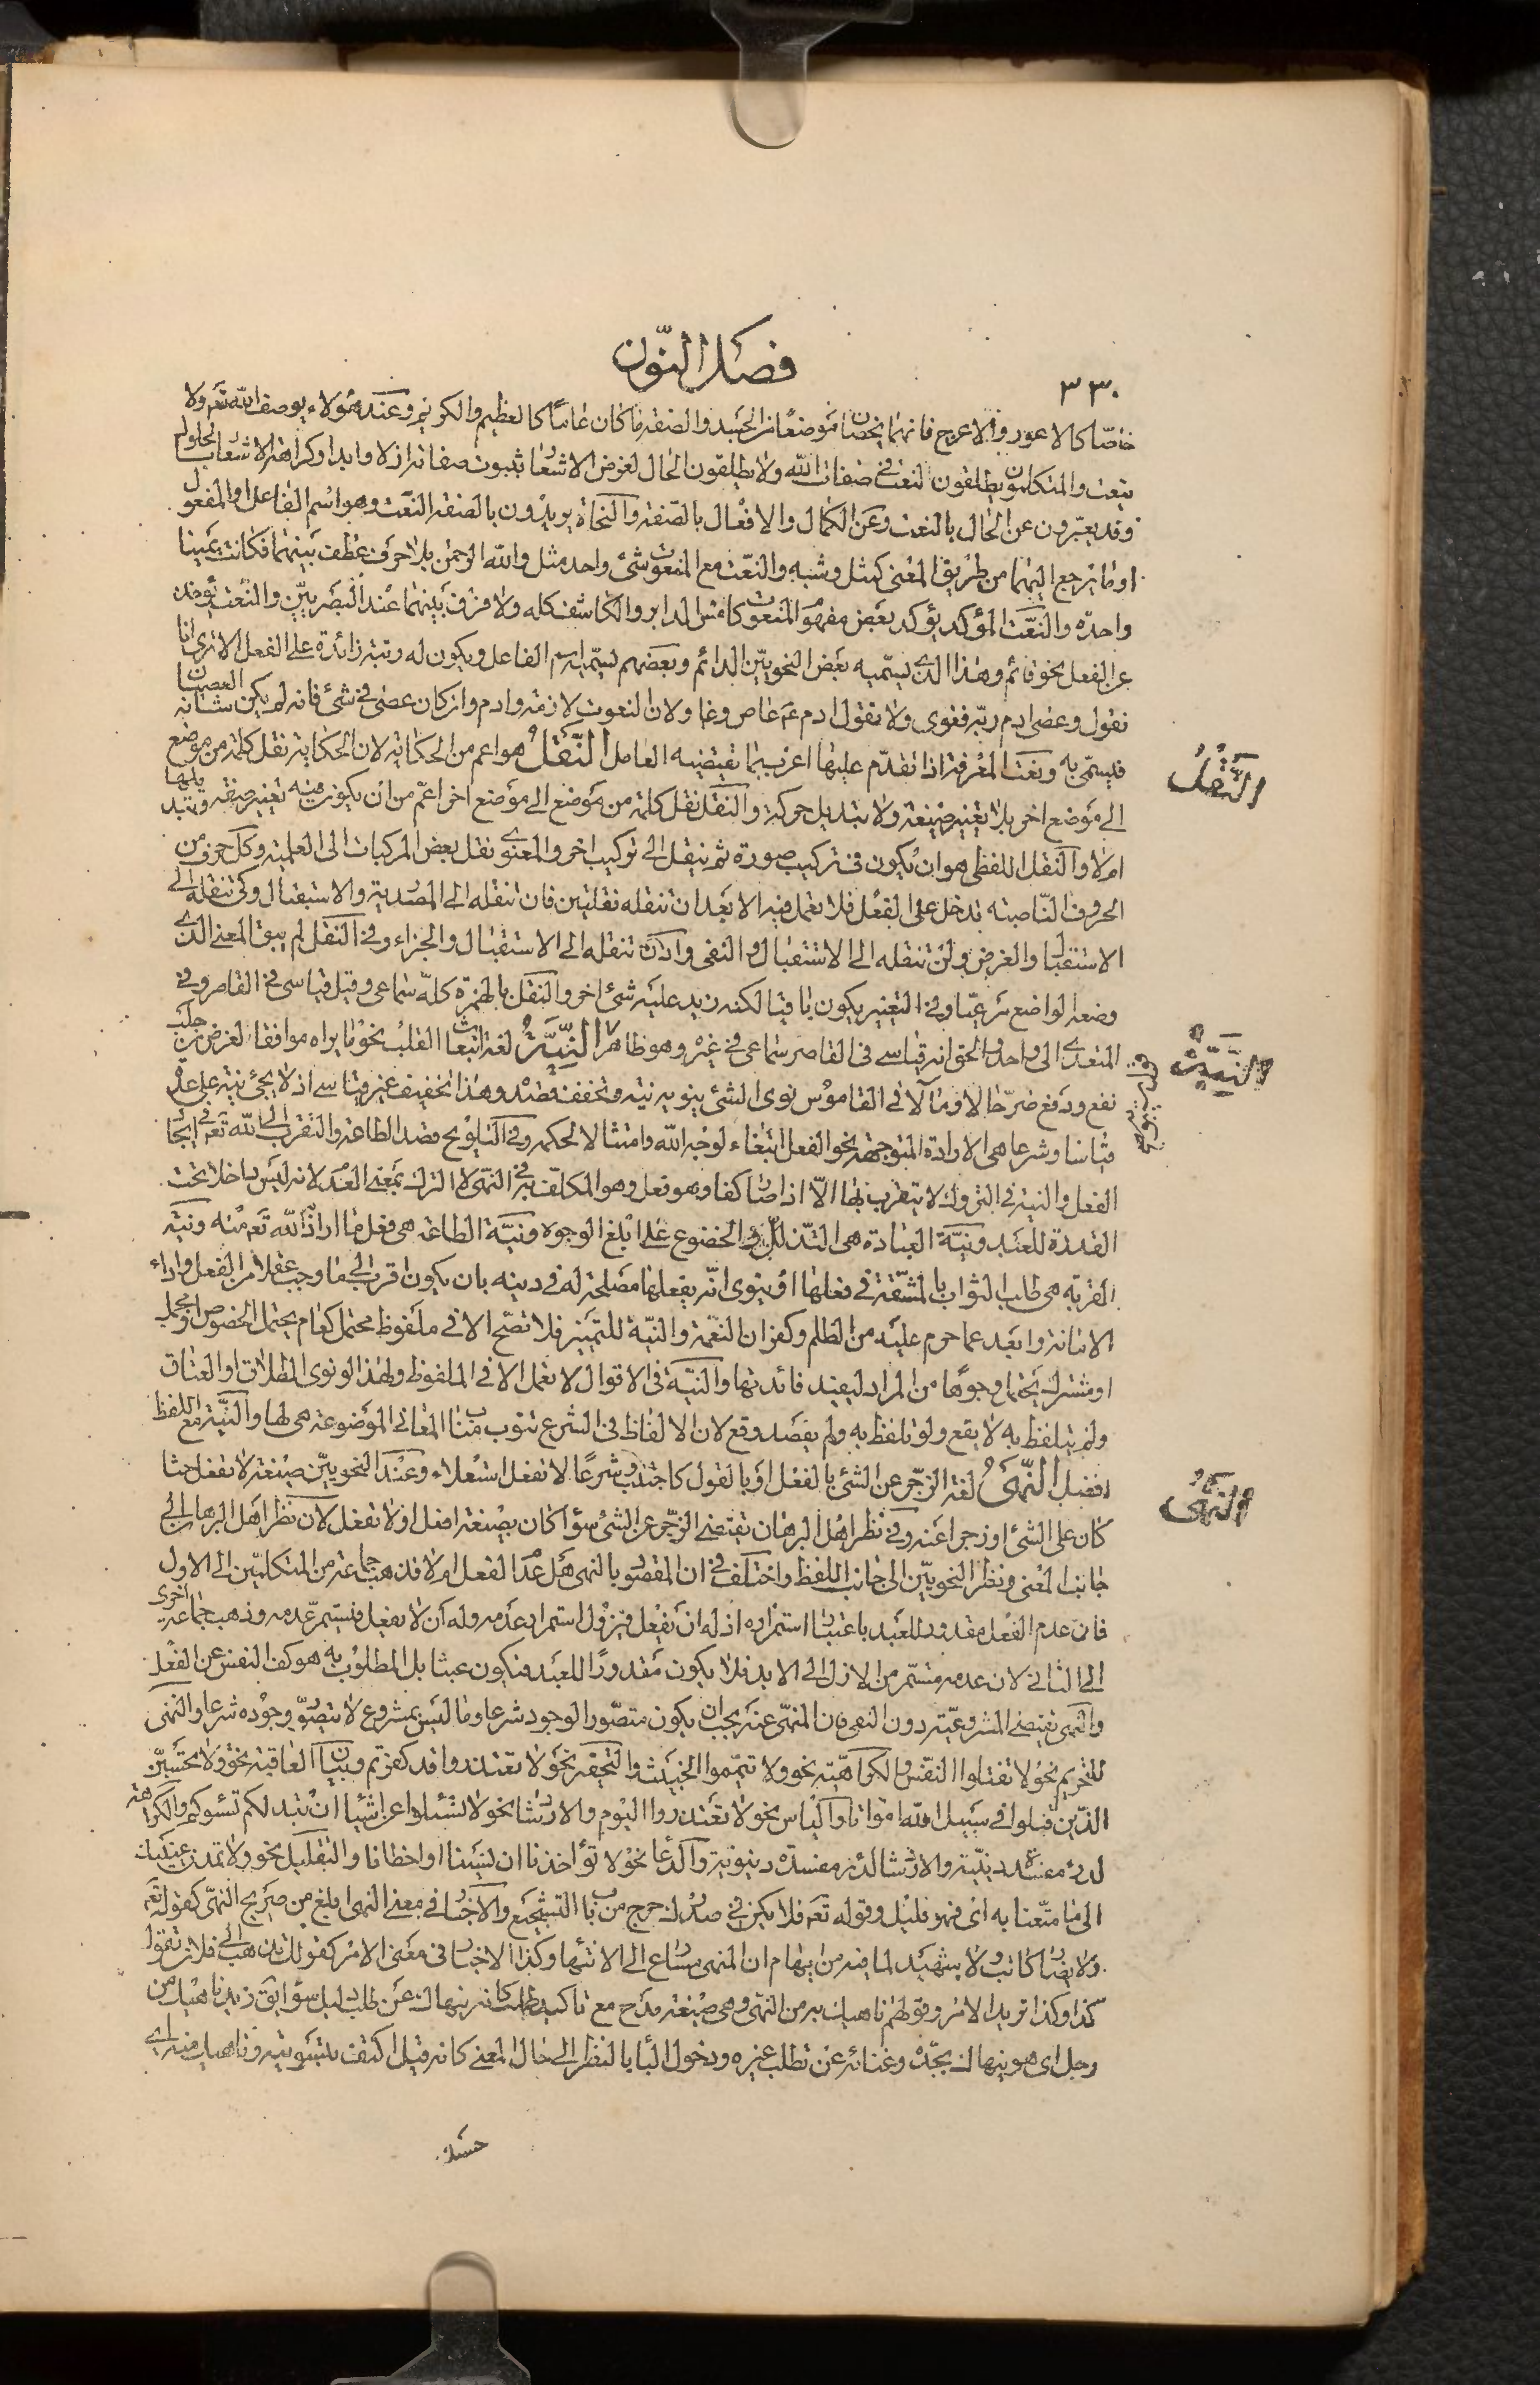 ٣٣٠
فصل النّون
خاصّا كالاعور والاعرج فانهما يخصان موضعًا من الجسد والصفة ما كان عامّا كالعظيم والكريم وعند هؤلاء يوصف الله تعم ولا
ينعت والمتكلمون يطلقون النعت في صفات الله ولا يطلقون الحال لغرض الاشعار بثبوت صفاته ازلا وابدا وكراهة الاشعار بالحلول
وقد يعبّرون عن الحال بالنعت وعن الكمال والافعال بالصّفة والنحاة يريدون بالصفة النّعت وهو اسم الفاعل او المفعول
او ما يرجع اليهما من طريق المعنى كمثل وشبه والنّعت مع المنعوت شئ واحد مثل والله الرحمن بلا حرف عطف بينهما فكانت يمينا
واحدة والنّعت المؤكد يؤكد بعض مفهوم المنعوت كامس الدابر والكاشف كله ولا فرق بينهما عند البصريّين والنّعت يؤخذ
عن الفعل نحو قائم وهذا الذى يسمّيه بعض النحويّين الدائم وبعضهم يسمّيه اسم الفاعل ويكون له رتبة زائدة على الفعل الا ترى انا
نقول وعصى ادم ربّه فغوى ولا نقول ادم عم عاص وغاو لان النعوت لازمة وادم وان كان عصى في شئ فانه لم يكن شانه العصيان
فيسمّى به ونعت المعرفة اذا تقدّم عليها اعرب بما تقتضيه العامل النّقل هو اعم من الحكاية لان الحكاية نقل كلمة من موضع
الى موضع اخر بلا تغيير صيغة ولا تبديل حركة والنّقل نقل كلمة من موضع الى موضع اخر اعمّ من ان يكون فيه تغيير صيغة وتبديلها
ام لا والنقل اللفظى هو ان يكون في تركيب صورة ثم ينقل الى تركيب اخر والمعنوى نقل بعض المركبات الى العلمية وكل حرف من
الحروف النّاصبة تدخل على الفعل فلا تعمل فيه الا بعد ان تنقله نقلتين فان تنقله الى المصدرية والاستقبال وكى تنقله الى
الاستقبال والغرض ولن تنقله الى الاستقبال والنفى واذن تنقله الى الاستقبال والجزاء وفي النقل لم يبق المعنى الذى
وضعه الواضع مرعيّا وفي التغيير يكون باقيا لكنه زيد عليه شئ اخر والنقل بالهمزة كلّه سماعى وقيل قياسى في القاصر وفي
المتعدى الى واحد والحق انه قياسى في القاصر سماعى في غيره وهو ظاهر النّيّة لغة انبعاث القلب نحو ما يراه موافقا لغرض من جلب
نفع ودفع ضرّ حالا او مآلا في القاموس نوى الشئ ينويه نية وتخفف قصده وهذا تخفيف غير قياسى اذ لا يجئ نية على عدة
قياسا وشرعا هى الارادة المتوجهة نحو الفعل ابتغاء لوجه الله وامتثالا لحكمه وفي التلويح قصد الطاعة والتقرب الى الله تعم في ايجاد
الفعل والنية في التروك لا يتقرب بها الّا اذا صار كفا وهو فعل وهو المكلف به في النهى لا الترك بمعنى العدم لانه ليس داخلا تحت
القدرة للعبد ونيّة العبادة هى التذلل والخضوع على ابلغ الوجوه ونيّة الطاعة هى فعل ما اراد الله تعم منه ونية
القربة هى طلب الثواب بالمشقّة في فعلها او ينوى انّه يفعلها مصلحة له في دينه بان يكون اقرب الى ما وجب عقلا من الفعل واداء
الامانة وابعد عما حرم عليه من الظلم وكفران النّعمة والنيّة للتمييز فلا تصح الا في ملفوظ محتمل كعام يحتمل الخصوص او مجمل
او مشترك يحتمل وجوهًا من المراد ليفيد فائدتها والنيّة في الاقوال لا تعمل الا في الملفوظ ولهذا لو نوى الطلاق او العتاق
ولم يتلفظ به لا يقع ولو تلفظ به ولم يقصد وقع لان الالفاظ في الشرع تنوب مناب المعانى الموضوعة هى لها والنّيّة مع اللفظ
افضل النّهىُ لغة الزجر عن الشئ بالفعل او بالقول كاجتنب وشرعًا لا تفعل استعلاء وعند النحويّين صيغة لا تفعل حثا
كان على الشئ او زجرا عنه وفي نظر اهل البرهان تقتضى الزجر عن الشئ سواء كان بصيغة افعل او لا تفعل لان نظر اهل البرهان الى
جانب المعنى ونظر النحويّين الى جانب اللفظ واختلف في ان المقصود بالنهى هل عدم الفعل ام لا فذهب جماعة من المتكلمّين الى الاول
فان عدم الفعل مقدور للعبد باعتبار استمراره اذ له ان يفعل فيزول استمرار عدمه وله ان لا يفعل فيستمرّ عدمه وذهب جماعة اخرى
الى الثانى لان عدمه مستمر من الازل الى الابد فلا يكون مقدورًا للعبد فيكون عبثا بل المطلوب به هو كف النفس عن الفعل
والنهى يقتضى المشروعيّة دون النفى فان المنهىّ عنه يجب ان يكون متصّور الوجود شرعا وما ليس بمشروع لا يتصوّر وجوده شرعا والنهى
للتحريم نحو لا تقتلوا النفس والكراهيّة نحو ولا تيمّموا الخبيث والتحقير نحو لا تعتذروا قد كفرتم وبيان العاقبة نحو ولا تحسبنّ
الذّين قتلوا في سبيل الله امواتا والياس نحو لا تعتذروا اليوم والارشاد نحو لا تسئلوا عن اشياء ان تبد لكم تسؤكم والكراهة
لدرء مفسدة دينيّة والارشاد لدرء مفسدة دنيوية والدعاء نحو لا تؤاخذنا ان نسينا او اخطانا والتقليل نحو ولا تمدن عينيك
الى ما متّعنا به اى فهو قليل وقوله تعم فلا يكن في صدرك حرج من باب التشجيع والاخبار في معنى النهى ابلغ من صريح النهىّ كقوله تعم
ولا يضار كاتب ولا شهيد لما فيه من ايهام ان المنهى يسارع الى الانتهاء وكذا الاخبار في معنى الامر كقولك تذهب الى فلان تقول له
كذا وكذا تريد الامر وقولهم ناهيك به من النهى وهى صيغة مدح مع تاكيد طلب كانه ينهاك عن طلب دليل سواه يق زيد ناهيك من
رجل اى هو ينهاك بجدّه وغنائه عن تطلب غيره ودخول الباء بالنظر الى حال المعنى كانه قيل اكتف بتسويته وناهيك منه اى
حسبك
النَّقْلُ
النِّيَّةُ
النهىُ